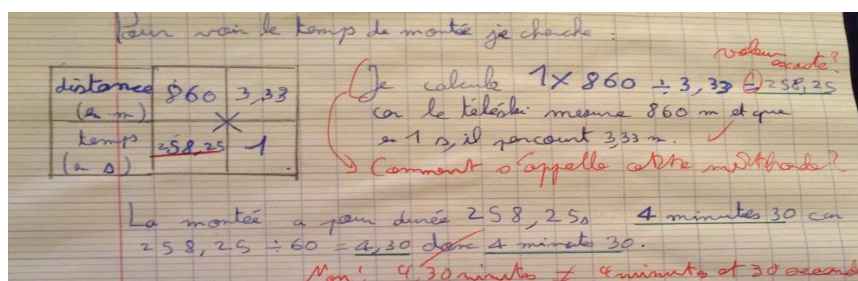 Pour voir le temps de montée je cherche :
valeur exacte?
distance (en m) 860 3,33
temps (en s) 258,25 1
Je calcule 1 × 860 ÷ 3,33 = 258,25
car le téléski mesure 860 m et que
en 1 s, il parcourt 3,33 m.
Comment s'appelle cette méthode?
La montée a pour durée 258,25s 4 minutes 30 car
258,25 ÷ 60 = 4,30 donc 4 minutes 30.
Non! 4,30 minutes ≠ 4 minutes et 30 secondes